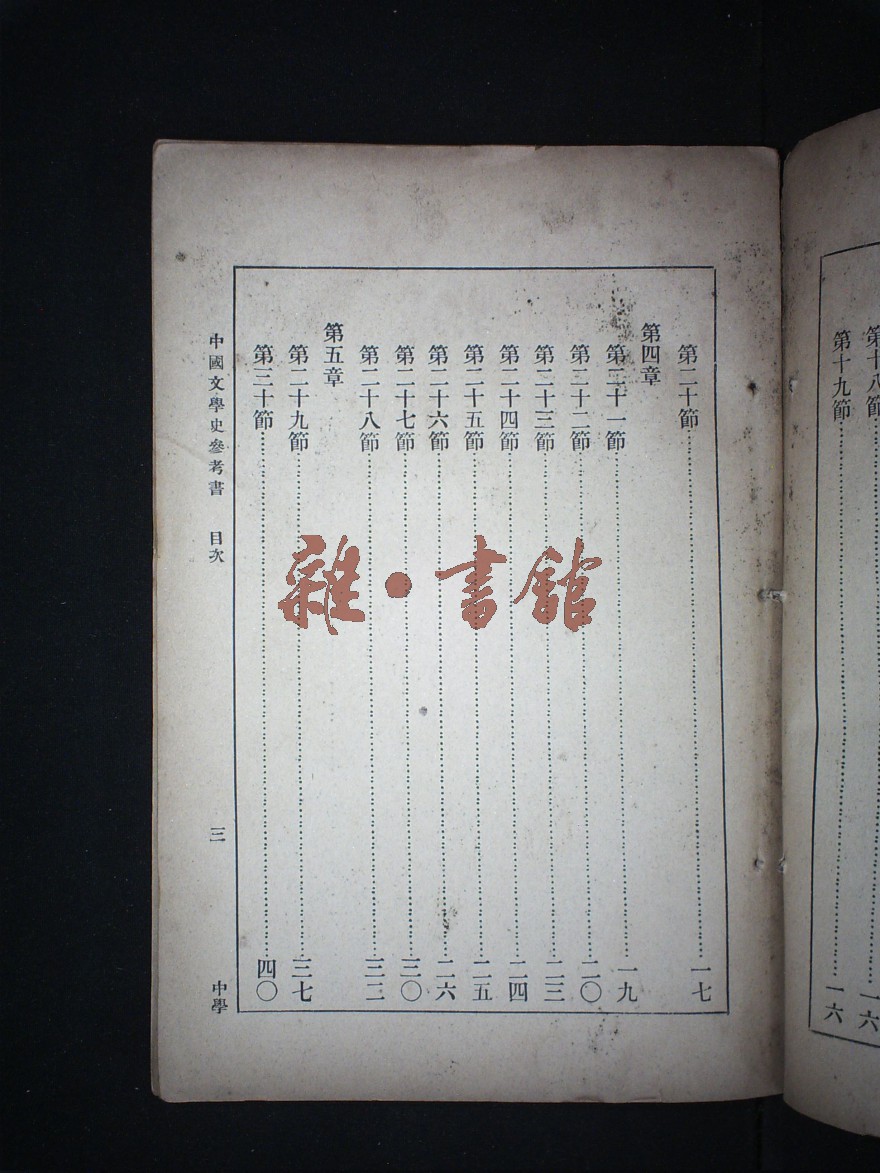 第十八節……一六
第十九節……一六
第二十節……一七
第四章
第二十一節……一九
第二十二節……二〇
第二十三節……二三
第二十四節……二四
第二十五節……二五
第二十六節……二六
第二十七節……三〇
第二十八節……三二
第五章
第二十九節……三七
第三十節……四〇
中國文學史參考書 目次 三 中學
雜·書館